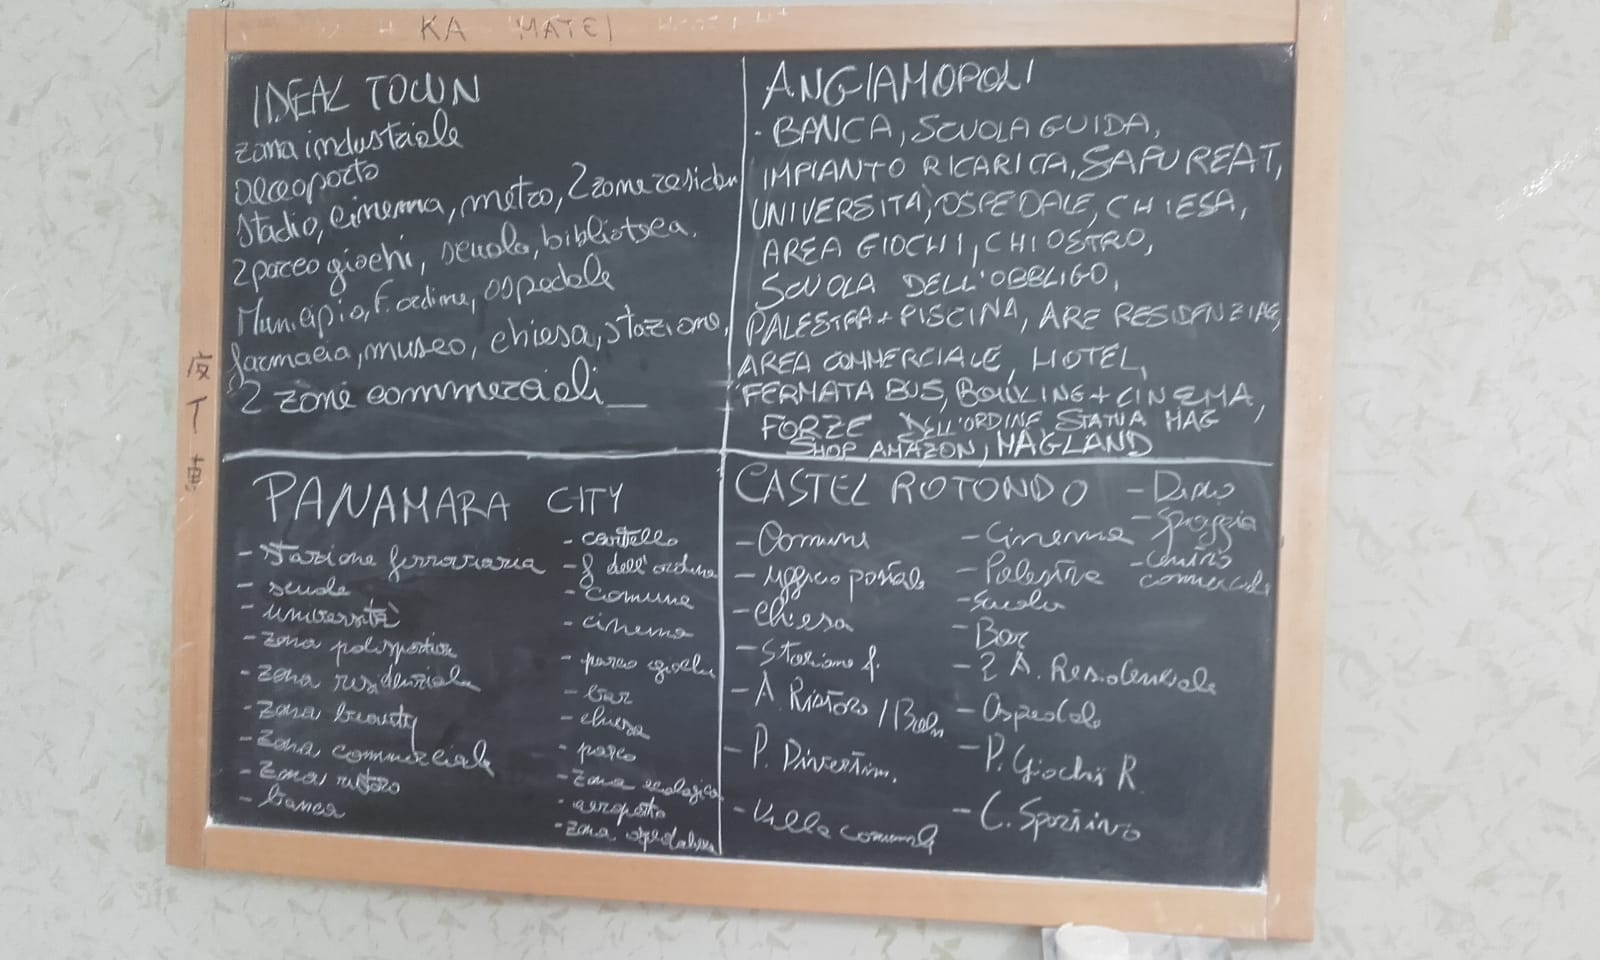 KA MATEI
IDEAL TOWN
zona industriale
aereoporto
stadio, cinema, metro, 2 zone residen
2 parco giochi, scuola, biblioteca.
Municipio, F. ordine, ospedale
farmacia, museo, chiesa, stazione,
2 zone commerciali
ANGIAMOPOLI
- BANCA, SCUOLA GUIDA,
IMPIANTO RICARICA, SAFU REAT,
UNIVERSITÀ, OSPEDALE, CHIESA,
AREA GIOCHI, CHIOSTRO,
SCUOLA DELL'OBBLIGO,
PALESTRA + PISCINA, ARE RESIDENZIALE,
AREA COMMERCIALE, HOTEL,
FERMATA BUS, BOWLING + CINEMA,
FORZE DELL'ORDINE, STATUA MAG
SHOP AMAZON, MAGLAND
PANAMARA CITY
- stazione ferroviaria
- scuole
- università
- zona polisportiva
- zona residenziale
- zona beauty
- zona commerciale
- zona ristoro
- banca
- castello
- f dell'ordine
- comune
- cinema
- parco giochi
- bar
- chiesa
- parco
- zona ecologica
- aeroporto
- zona ospedaliera
CASTEL ROTONDO
- Comune
- Ufficio postale
- Chiesa
- Stazione f.
- A. Ristoro /
- P. Divertim.
- Villa comunale
- Cinema
- Palestra
- Scuola
- Bar
- 2 A. Residenziale
- Ospedale
- P. Giochi R.
- C. Sportivo
- Disco
- Spiaggia
- Centro
commerciale
皮
丁
車